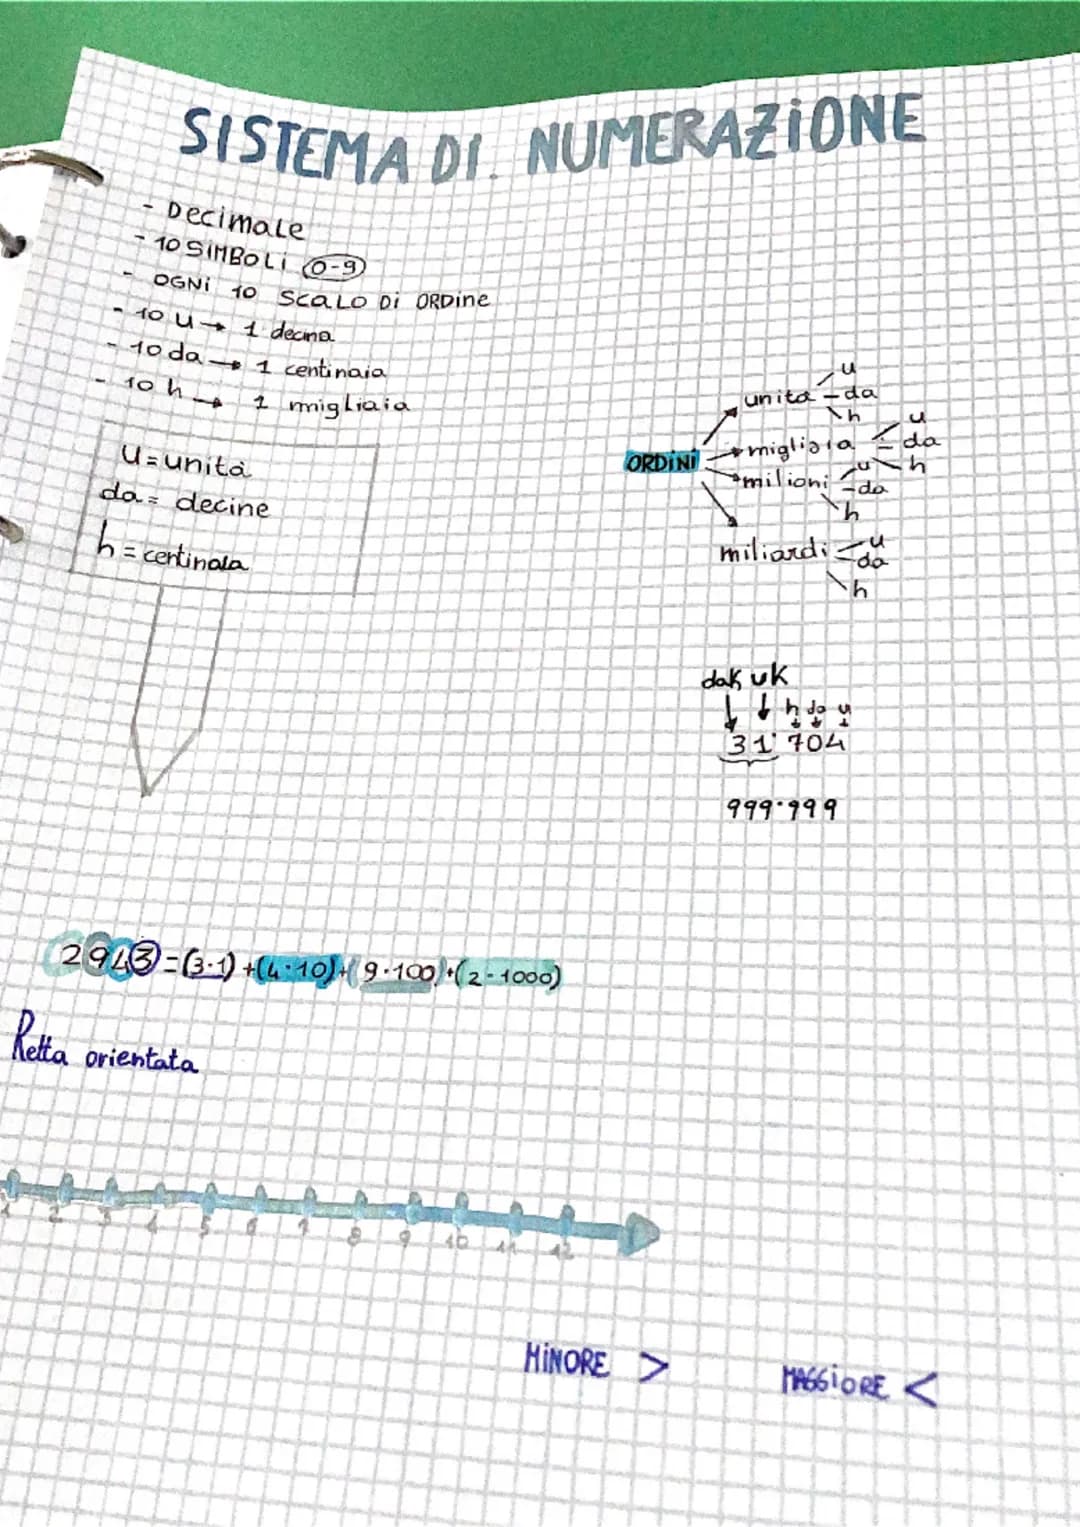 SISTEMA DI. NUMERAZiONE
- Decimale
- 10 SiMBOLi 0-9
- OGNi 10 SCALO Di ORDine
- 10 u → 1 decina
- 10 da → 1 centinaia
- 10 h → 1 migliaia
u = unità
da = decine
h = centinaia
ORDiNi
unità
u
da
h
migliaia
u
da
h
milioni
u
da
h
miliardi
u
da
h
dak uk
h da u
31˙704
999˙999
2943 = (3·1) + (4·10) + (9·100) + (2·1000)
Retta orientata
1 2 3 4 5 6 7 8 9 10 11 12
MiNORE > MAGGiORE <